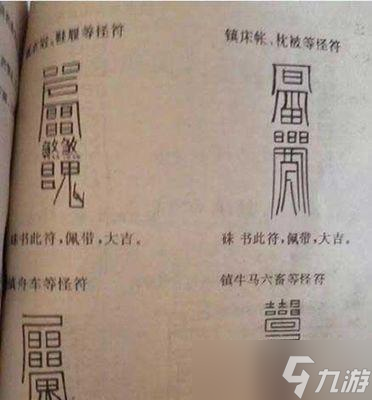 衣冠、鞋履等怪符
镇床帐、枕被等怪符
硃书此符，佩带，大吉。
硃书此符，佩带，大吉。
镇舟车等怪符
镇牛马六畜等怪符
九游